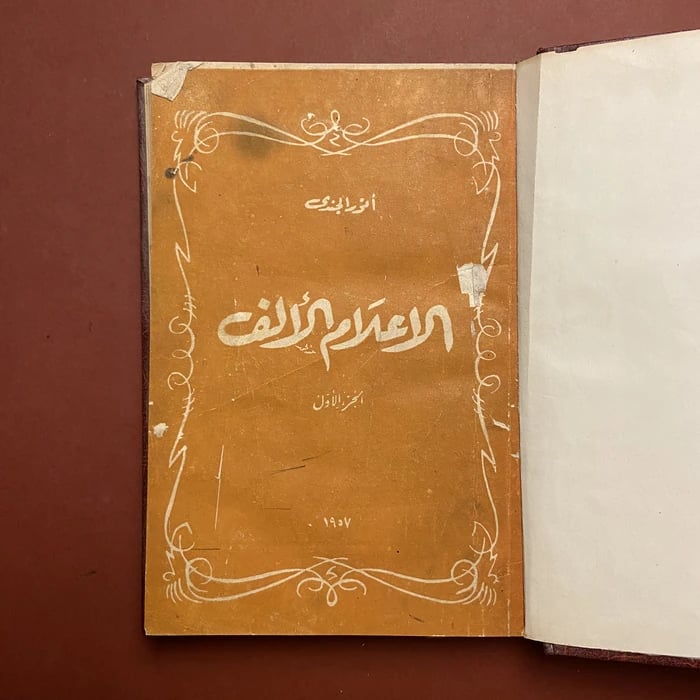 أنور الجندى
الاعلام الألف
الجزء الأول
١٩٥٧